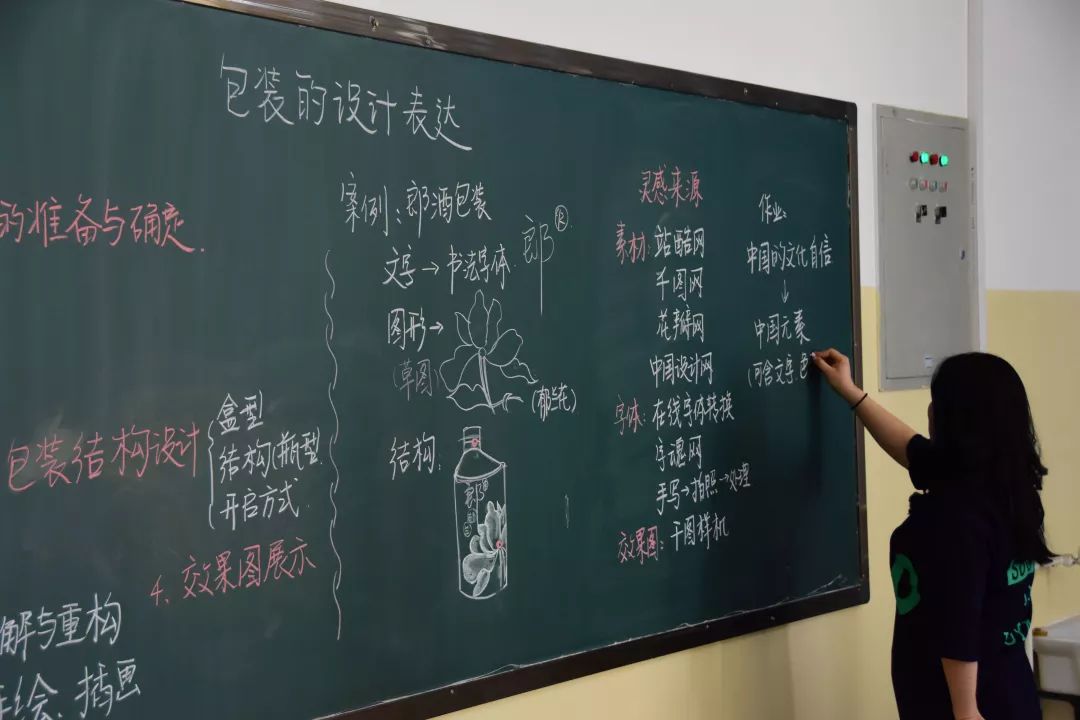 包装的设计表达
的准备与确定.
包装结构设计
盒型
结构(瓶型
开启方式
4. 效果图展示
解与重构
手绘.插画
案例:郎酒包装
文字→书法字体.
郎®
图形→
(草图)
(郁兰花)
结构:
郎
灵感来源
素材:站酷网
千图网
花瓣网
中国设计网
字体:在线字体转换
字魂网
手写→拍照→处理
效果图:千图样机
作业:
中国的文化自信
↓
中国元素
(可含文字.色